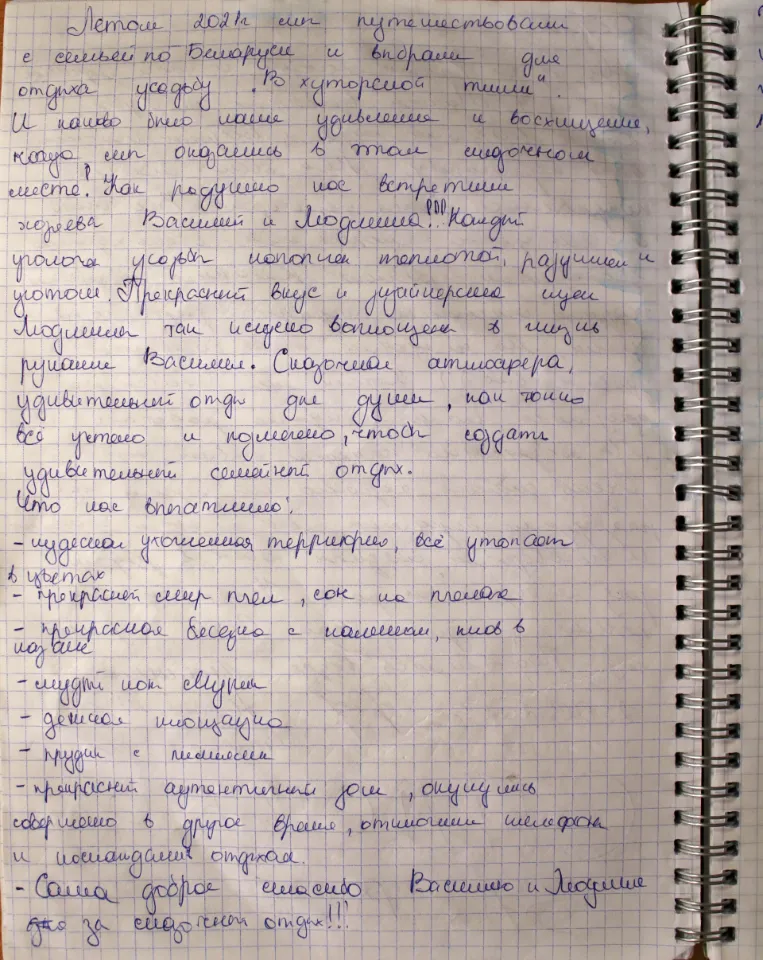 Летом 2021г мы путешествовали
с семьёй по Беларуси и выбрали для
отдыха усадьбу "В хуторской тиши".
И каково было наше удивление и восхищение,
когда мы оказались в этом сказочном
месте! Как радушно нас встретили
хозяева Василий и Людмила!!! Каждый
уголочек усадьбы наполнен теплотой, радушием и
уютом. Прекрасный вкус и дизайнерские идеи
Людмилы так искусно воплощены в жизнь
руками Василия. Сказочная атмосфера,
удивительный отдых для души, как тонко
всё учтено и подмечено, чтобы создать
удивительный семейный отдых.
Что нас впечатлило:
- чудесная ухоженная территория, всё утопает
в цветах
- прекрасный мир пчел, сон на пчелах
- прекрасная беседка с камином, плов в
казане
- мудрый кот Мурык
- детская площадка
- прудик с лилиями
- прекрасный аутентичный дом, окунулись
совершенно в другое время, отключили телефоны
и наслаждались отдыхом.
- Самое доброе спасибо Василию и Людмиле
за сказочный отдых!!!